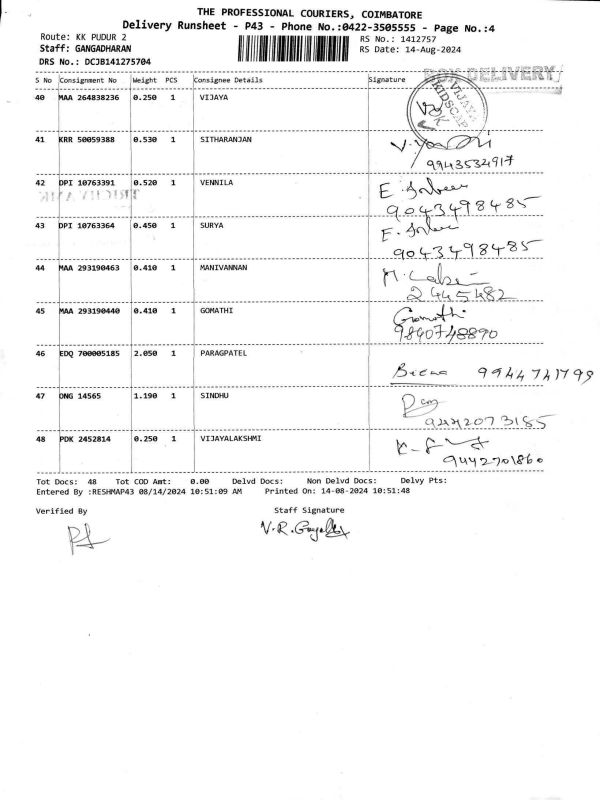 THE PROFESSIONAL COURIERS, COIMBATORE
Delivery Runsheet - P43 - Phone No.:0422-3505555 - Page No.:4
Route: KK PUDUR 2 RS No.: 1412757
Staff: GANGADHARAN RS Date: 14-Aug-2024
DRS No.: DCJB141275704
BOX DELIVERY
S No Consignment No Weight PCS Consignee Details Signature
40 MAA 264838236 0.250 1 VIJAYA
VIJAYA KIDSCARE
41 KRR 50059388 0.530 1 SITHARANJAN
9943534917
42 DPI 10763391 0.520 1 VENNILA
9043498485
43 DPI 10763364 0.450 1 SURYA
9043498485
44 MAA 293190463 0.410 1 MANIVANNAN
2445482
45 MAA 293190440 0.410 1 GOMATHI Gomathi
9840748890
46 EDQ 700005185 2.050 1 PARAGPATEL
9944741799
47 ONG 14565 1.190 1 SINDHU
9442073185
48 PDK 2452814 0.250 1 VIJAYALAKSHMI
9442701860
Tot Docs: 48 Tot COD Amt: 0.00 Delvd Docs: Non Delvd Docs: Delvy Pts:
Entered By :RESHMAP43 08/14/2024 10:51:09 AM Printed On: 14-08-2024 10:51:48
Verified By Staff Signature